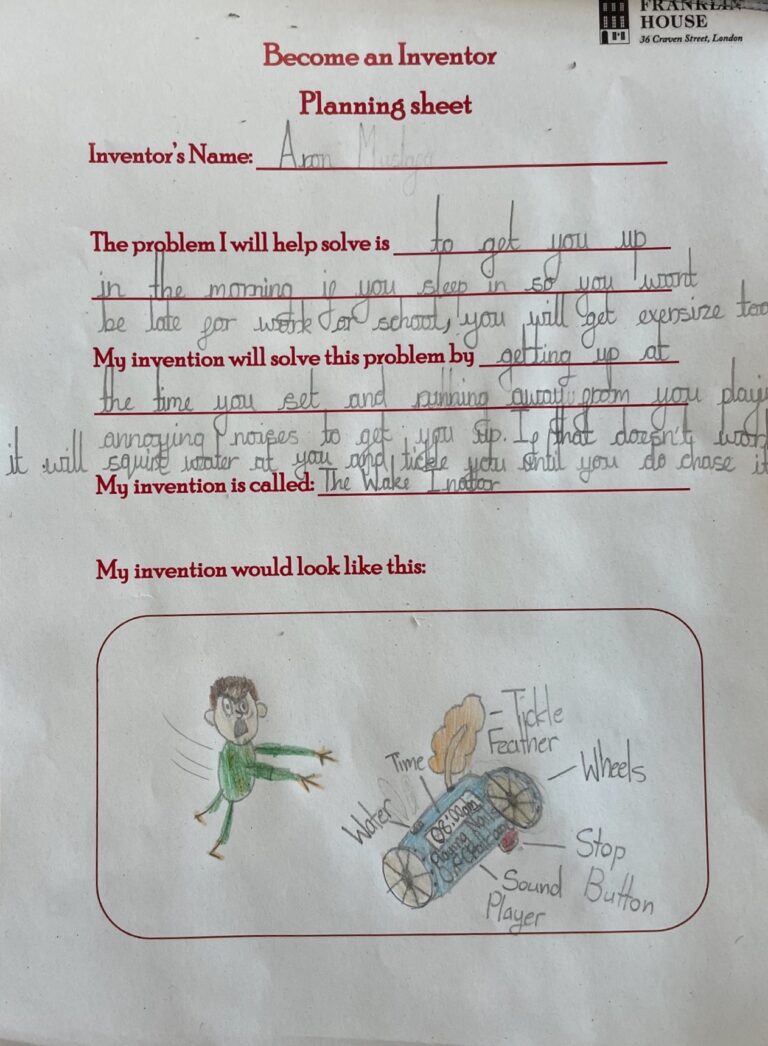 FRANKLIN
HOUSE
36 Craven Street, London
Become an Inventor
Planning sheet
Inventor's Name: Aron
The problem I will help solve is to get you up
in the morning if you sleep in so you wont
be late for work or school, you will get exersize too
My invention will solve this problem by getting up at
the time you set and running away from you playi
annoying noises to get you up. If that doesn't work
it will squirt water at you and tickle you until you do chase it
My invention is called: The Wake Inator
My invention would look like this:
Tickle
Feather
Time
Wheels
Water
06:00am
Playing
Stop
Button
Sound
Player